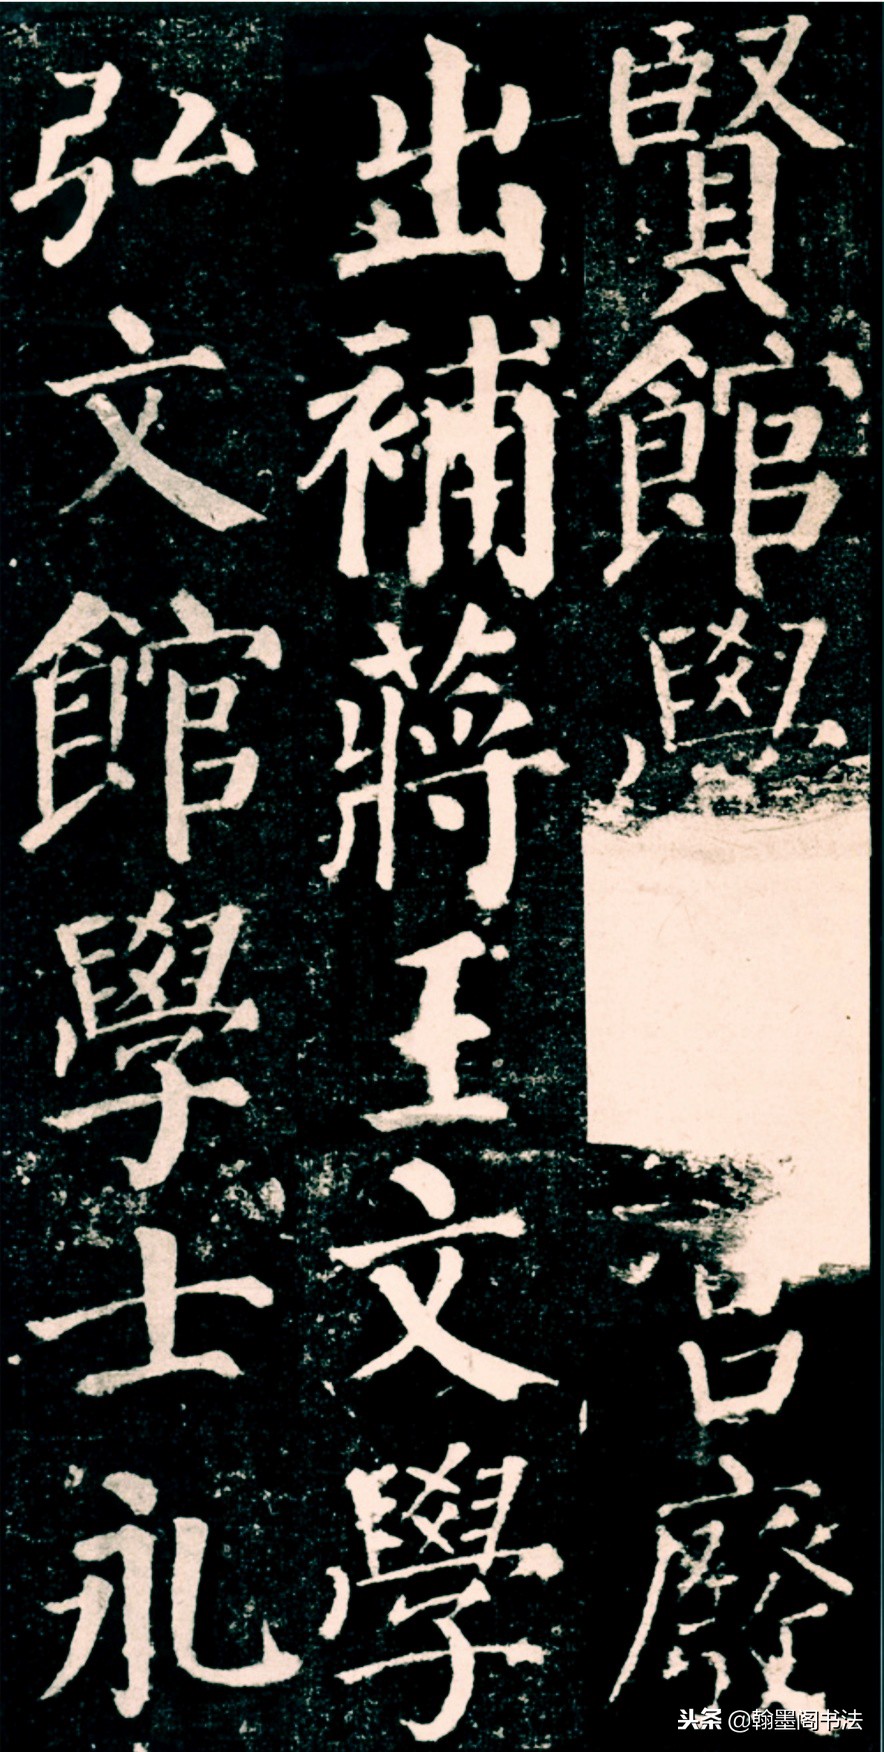 賢館學宫廢
出補蔣王文學
弘文館學士永
头条 @翰墨阁书法